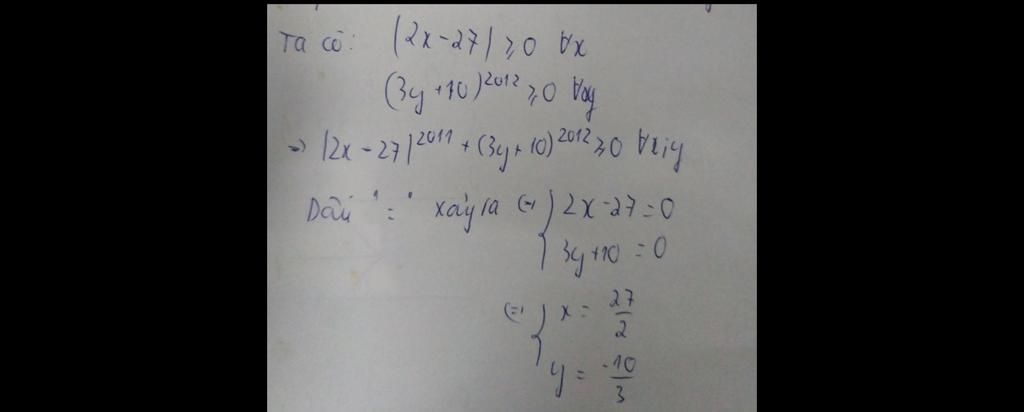 Ta có: |2x-27| ≥ 0 ∀x
(3y+10)^2012 ≥ 0 ∀y
=> |2x-27|^2011 + (3y+10)^2012 ≥ 0 ∀x;y
Dấu "=" xảy ra (=) { 2x-27=0
3y+10=0
(=) { x = 27/2
y = -10/3